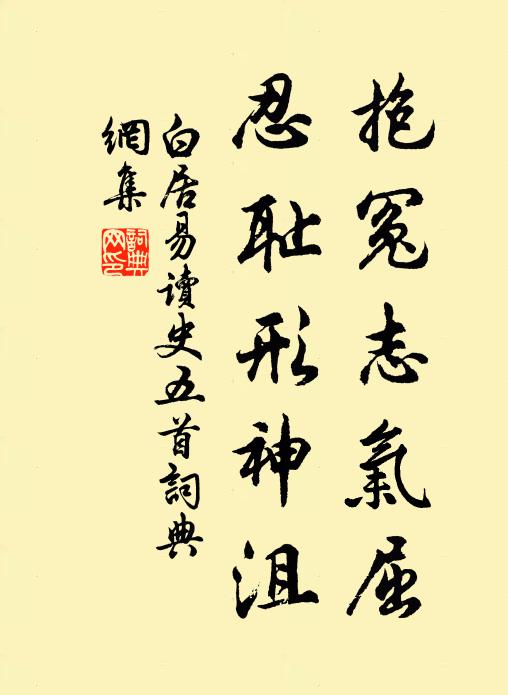 抱冤志氣屈
忍耻形神沮
白居易讀史五首詞典
網集
詞典
网印